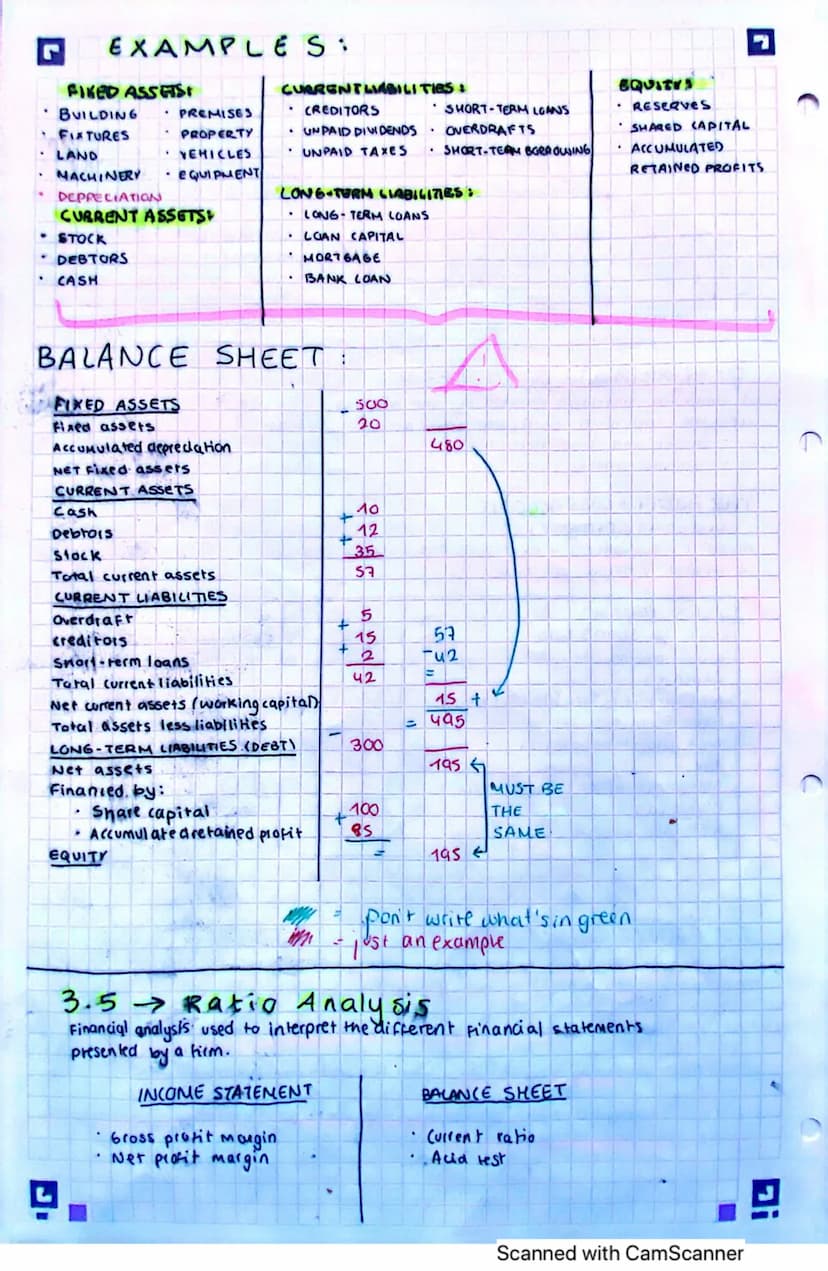 EXAMPLES:
FIXED ASSETS:
· BUILDING · PREMISES
· FIXTURES · PROPERTY
· LAND · VEHICLES
· MACHINERY · EQUIPMENT
· DEPRECIATION
CURRENT ASSETS:
· STOCK
· DEBTORS
· CASH
CURRENT LIABILITIES:
· CREDITORS · SHORT-TERM LOANS
· UNPAID DIVIDENDS · OVERDRAFTS
· UNPAID TAXES · SHORT-TEAM BOROUSING
LONG-TERM LIABILITIES:
· LONG-TERM LOANS
· LOAN CAPITAL
· MORTGAGE
· BANK LOAN
EQUITY:
· RESERVES
· SHARED CAPITAL
· ACCUMULATED
RETAINED PROFITS
BALANCE SHEET:
!
FIXED ASSETS - 500
Fixed assets 20
Accumulated depreciation 480
NET Fixed assets
CURRENT ASSETS
Cash + 10
Debtors + 12
Stock 35
Total current assets 57
CURRENT LIABILITIES
Overdraft + 5
creditors + 15 57
Short-term loans 2 -42
Total current liabilities 42 =
Net current assets (working capital) 15 +
Total assets less liabilities - = 495
LONG-TERM LIABILITIES (DEBT) 300
Net assets 195
Financed by: MUST BE
· Share capital + 100 THE
· Accumulated retained profit 95 SAME
EQUITY = 195
= Don't write what's in green
= just an example
3.5 → Ratio Analysis
Financial analysis used to interpret the different financial statements
presented by a firm.
INCOME STATEMENT
· Gross profit margin
· Net profit margin
BALANCE SHEET
· Current ratio
· Acid test
Scanned with CamScanner